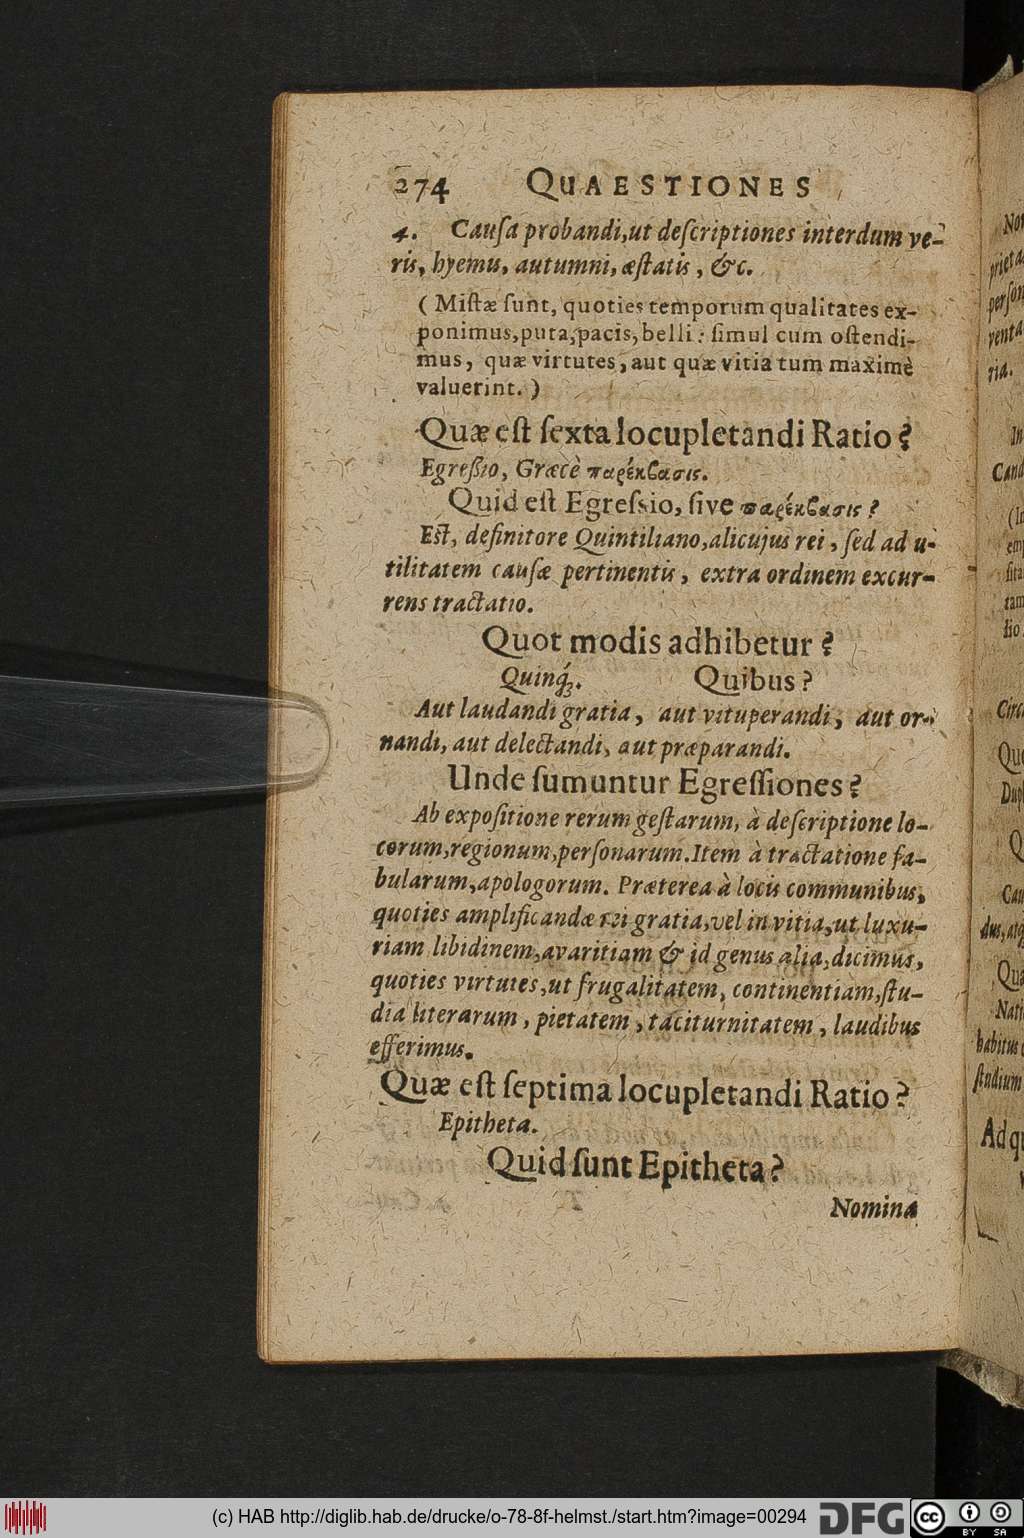 274 QUAESTIONES
4. Cauſa probandi,ut deſcriptiones interdum ve-
ris, hyemis, autumni, æſtatis, &c.
( Miſtæ ſunt, quoties temporum qualitates ex-
ponimus,puta,pacis,belli: ſimul cum oſtendi-
mus, quæ virtutes, aut quæ vitia tum maximè
valuerint. )
Quæ eſt ſexta locupletandi Ratio?
Egreßio, Græcè παρέκβασις.
Quid eſt Egreſsio, ſive παρέκβασις?
Eſt, definitore Quintiliano,alicujus rei, ſed ad u-
tilitatem cauſæ pertinentis, extra ordinem excur-
rens tractatio.
Quot modis adhibetur?
Quinq́;. Quibus?
Aut laudandi gratia, aut vituperandi, aut or-
nandi, aut delectandi, aut præparandi.
Unde ſumuntur Egreſſiones?
Ab expoſitione rerum geſtarum, à deſcriptione lo-
corum,regionum,perſonarum.Item à tractatione fa-
bularum,apologorum. Præterea à locis communibus,
quoties amplificandæ rei gratia,vel in vitia,ut luxu-
riam libidinem,avaritiam & id genus alia,dicimus,
quoties virtutes,ut frugalitatem, continentiam,ſtu-
dia literarum, pietatem, taciturnitatem, laudibus
efferimus.
Quæ eſt ſeptima locupletandi Ratio?
Epitheta.
Quid ſunt Epitheta?
Nomina
(c) HAB http://diglib.hab.de/drucke/o-78-8f-helmst./start.htm?image=00294
DFG
cc BY SA